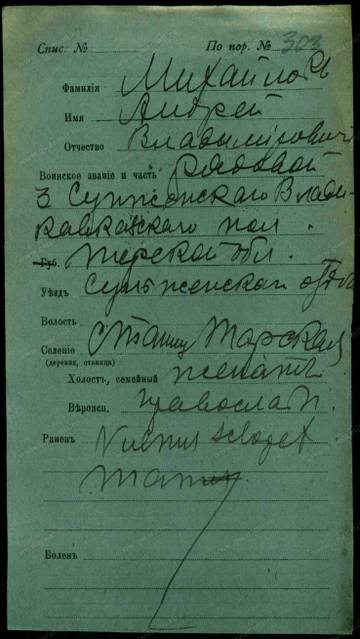 Спис. № По пор. № 303
Фамилія Михайловъ
Имя Андрей
Отчество Владиміровичъ
Воинское званіе и часть рядовой
3 Сунженскаго Влади-
кавказскаго пол.
Губ. Терской обл.
Уѣздъ Сунженскій отд
Волость
Селеніе Станиц Тарская
(деревня, станица)
Холост, семейный женатъ
Вѣроисп. Православн.
Раненъ Vulnus sclopet
man
Боленъ